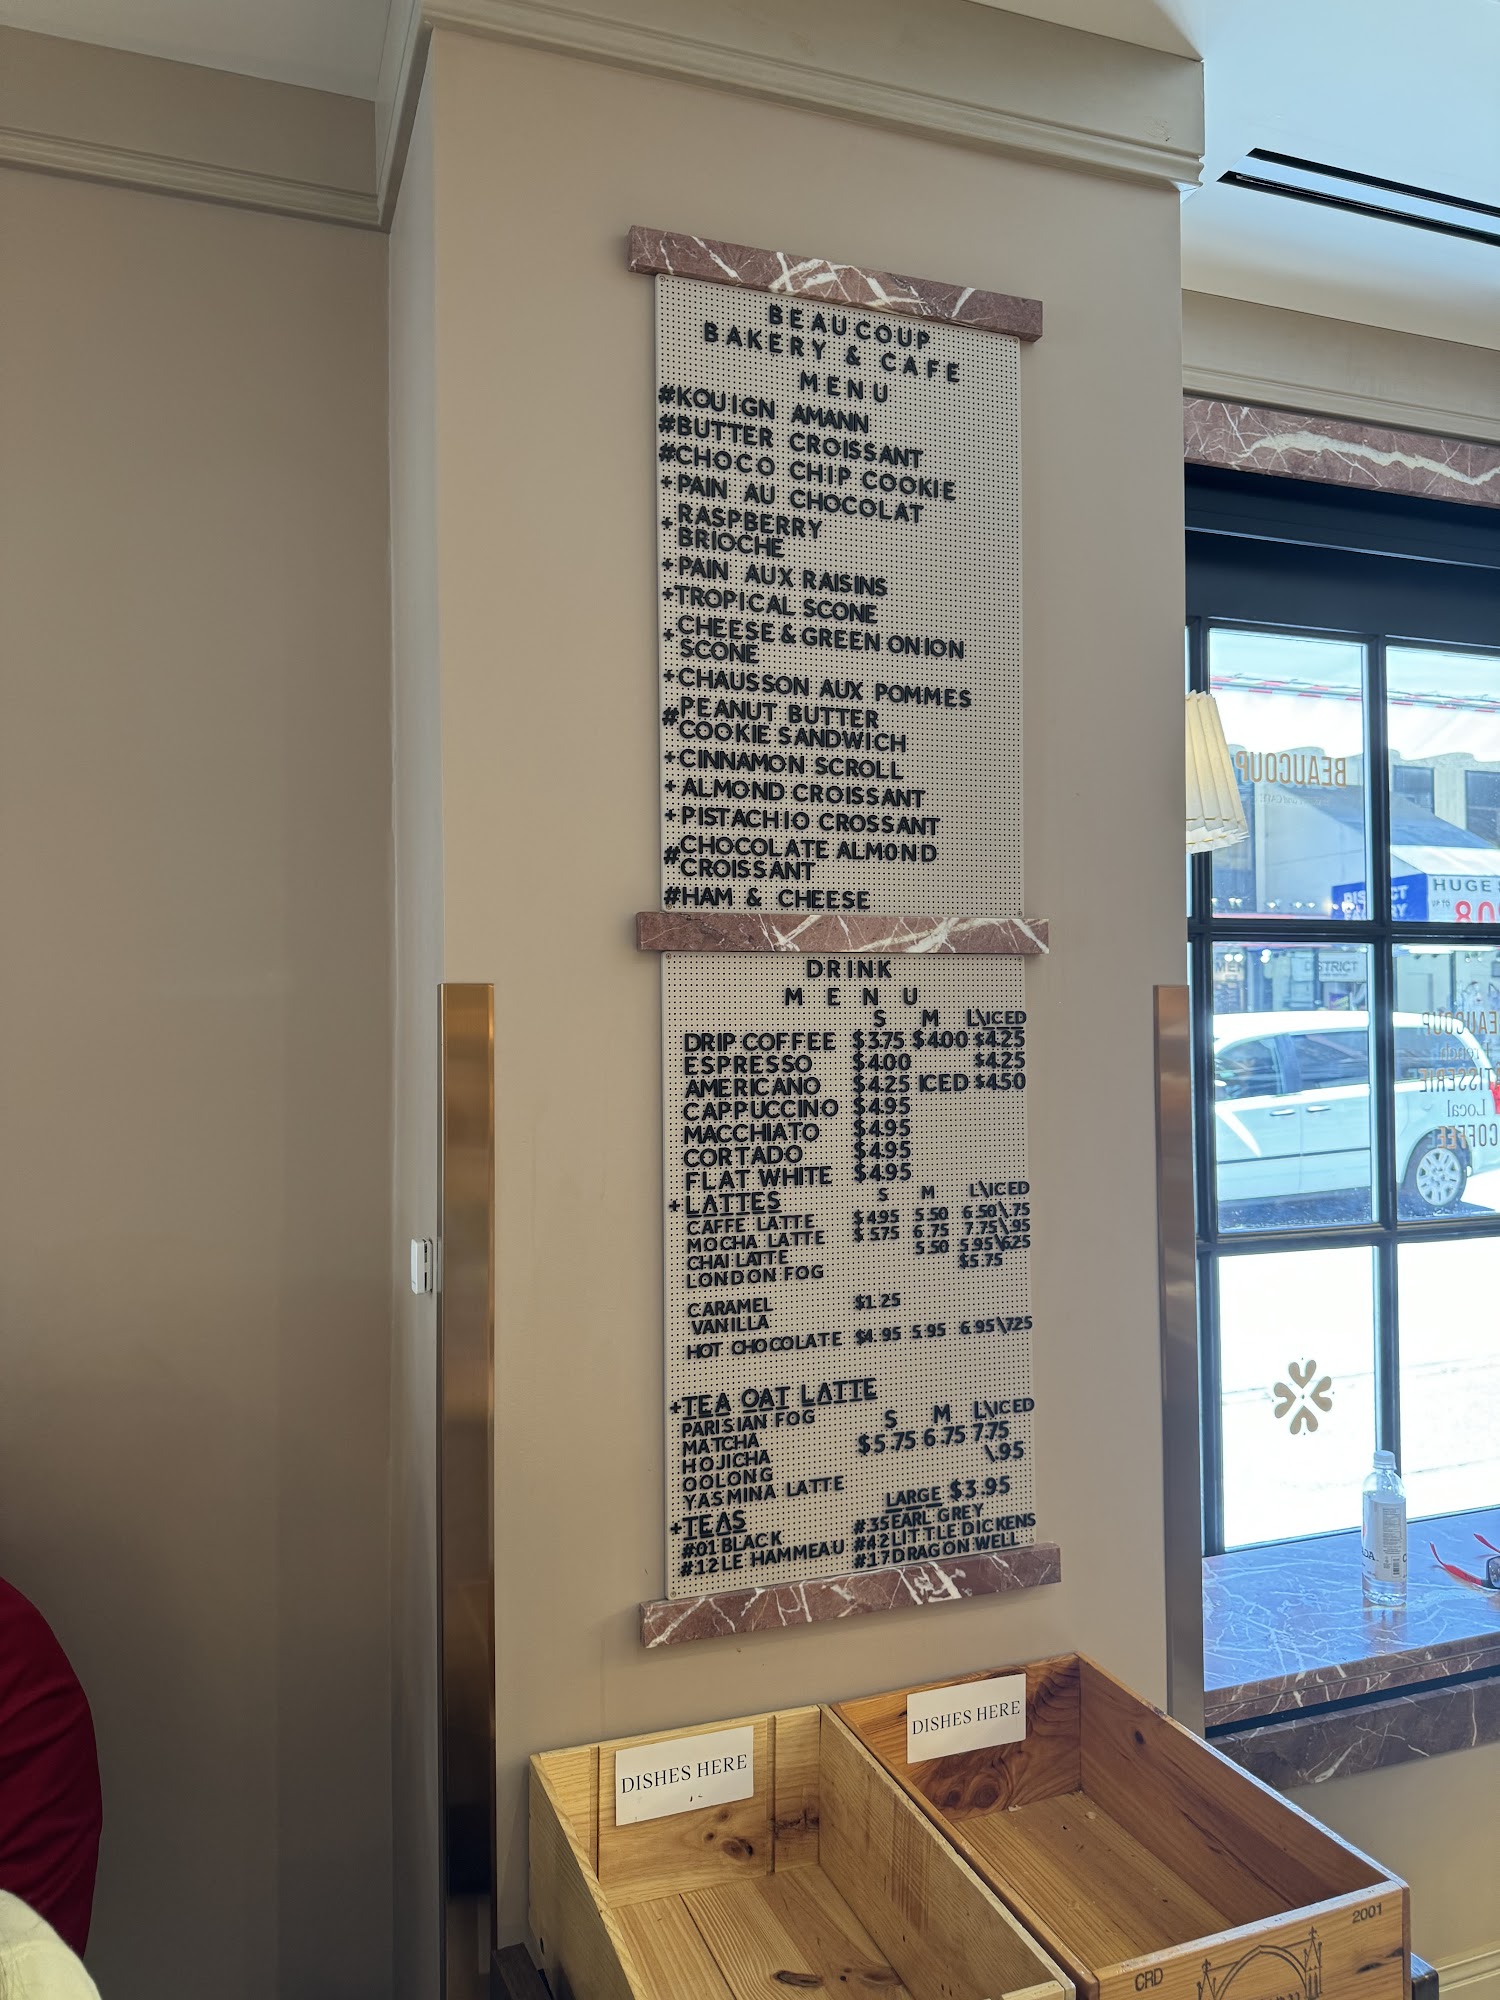 BEAUCOUP
BAKERY & CAFE
MENU
#KOUIGN AMANN
#BUTTER CROISSANT
#CHOCO CHIP COOKIE
+PAIN AU CHOCOLAT
+RASPBERRY
BRIOCHE
+PAIN AUX RAISINS
+TROPICAL SCONE
+CHEESE & GREEN ONION
SCONE
+CHAUSSON AUX POMMES
#PEANUT BUTTER
COOKIE SANDWICH
+CINNAMON SCROLL
+ALMOND CROISSANT
+PISTACHIO CROSSANT
#CHOCOLATE ALMOND
CROISSANT
#HAM & CHEESE
DRINK
MENU
S M L\ICED
DRIP COFFEE $3.75 $4.00 $4.25
ESPRESSO $4.00 $4.25
AMERICANO $4.25 ICED $4.50
CAPPUCCINO $4.95
MACCHIATO $4.95
CORTADO $4.95
FLAT WHITE $4.95
+LATTES S M L\ICED
CAFFE LATTE $4.95 5.50 6.50\.75
MOCHA LATTE $5.75 6.75 7.75\.95
CHAI LATTE 5.50 5.95\6.25
LONDON FOG $5.75
CARAMEL $1.25
VANILLA
HOT CHOCOLATE $4.95 5.95 6.95\7.25
+TEA OAT LATTE
PARISIAN FOG S M L\ICED
MATCHA $5.75 6.75 7.75
HOJICHA \.95
OOLONG
YASMINA LATTE
+TEAS LARGE $3.95
#01 BLACK #35 EARL GREY
#12 LE HAMMEAU #42 LITTLE DICKENS
#17 DRAGON WELL
DISHES HERE
DISHES HERE
2001
CRD
BEAUCOUP
HUGE
DISTRICT
BEAUCOUP
French
PATISSERIE
Local
COFFEE